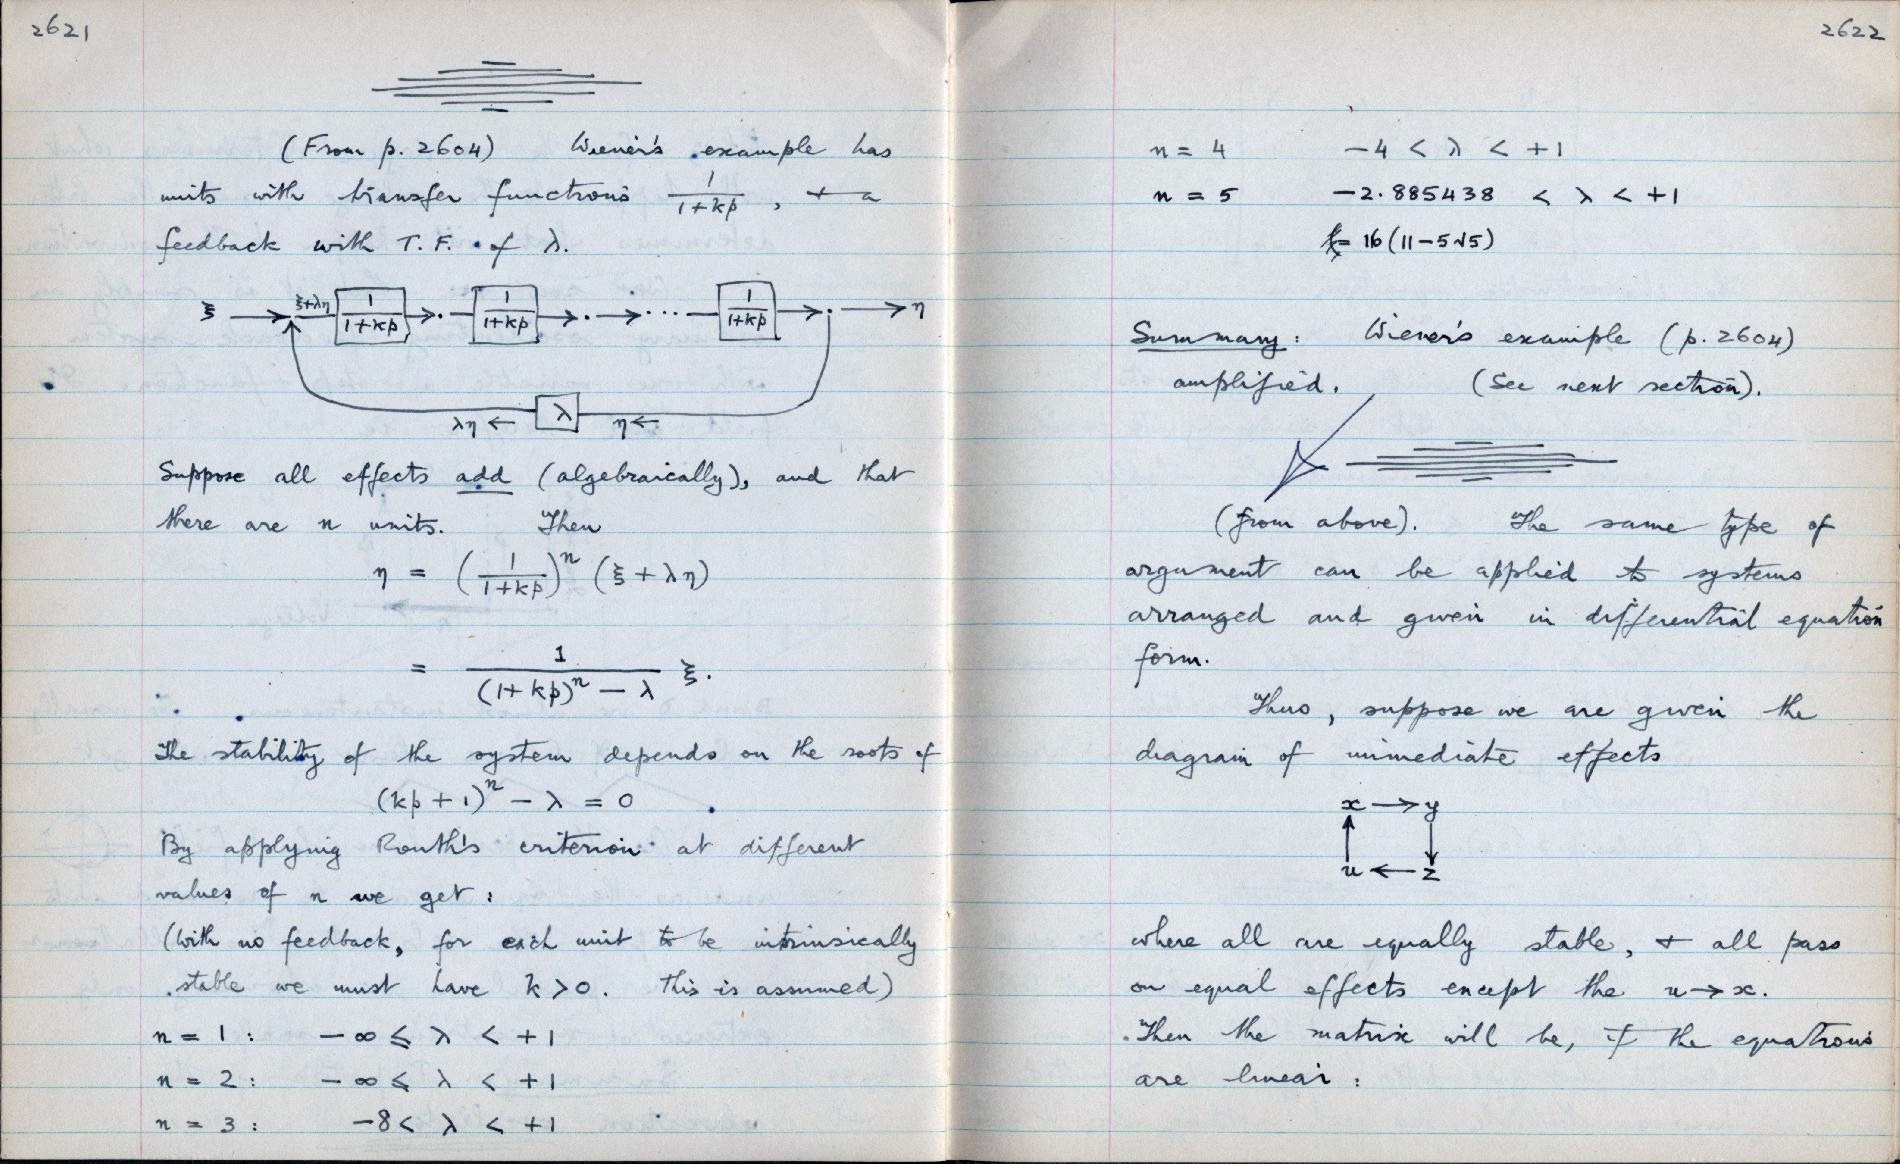 2621
(From p. 2604) Wiener's example has
units with transfer functions 1/(1+kp), + a
feedback with T. F. of λ.
ξ ξ+λη 1/(1+kp) 1/(1+kp) ... 1/(1+kp) η
λη ← λ η ←
Suppose all effects add (algebraically), and that
there are n units. Then
η = (1/(1+kp))ⁿ (ξ + λη)
= 1/((1+kp)ⁿ − λ) ξ.
The stability of the system depends on the roots of
(kp + 1)ⁿ − λ = 0
By applying Routh's criterion at different
values of n we get :
(With no feedback, for each unit to be intrinsically
stable we must have k > 0. This is assumed)
n = 1 : − ∞ ≤ λ < +1
n = 2 : − ∞ ≤ λ < +1
n = 3 : −8 < λ < +1
2622
n = 4 −4 < λ < +1
n = 5 −2.885438 < λ < +1
= 16(11−5√5)
Summary : Wiener's example (p. 2604)
amplified. (See next section).
(from above). The same type of
argument can be applied to systems
arranged and given in differential equation
form.
Thus, suppose we are given the
diagram of immediate effects
x → y
↑ ↓
u ← z
where all are equally stable, + all pass
on equal effects except the u → x.
Then the matrix will be, if the equations
are linear :